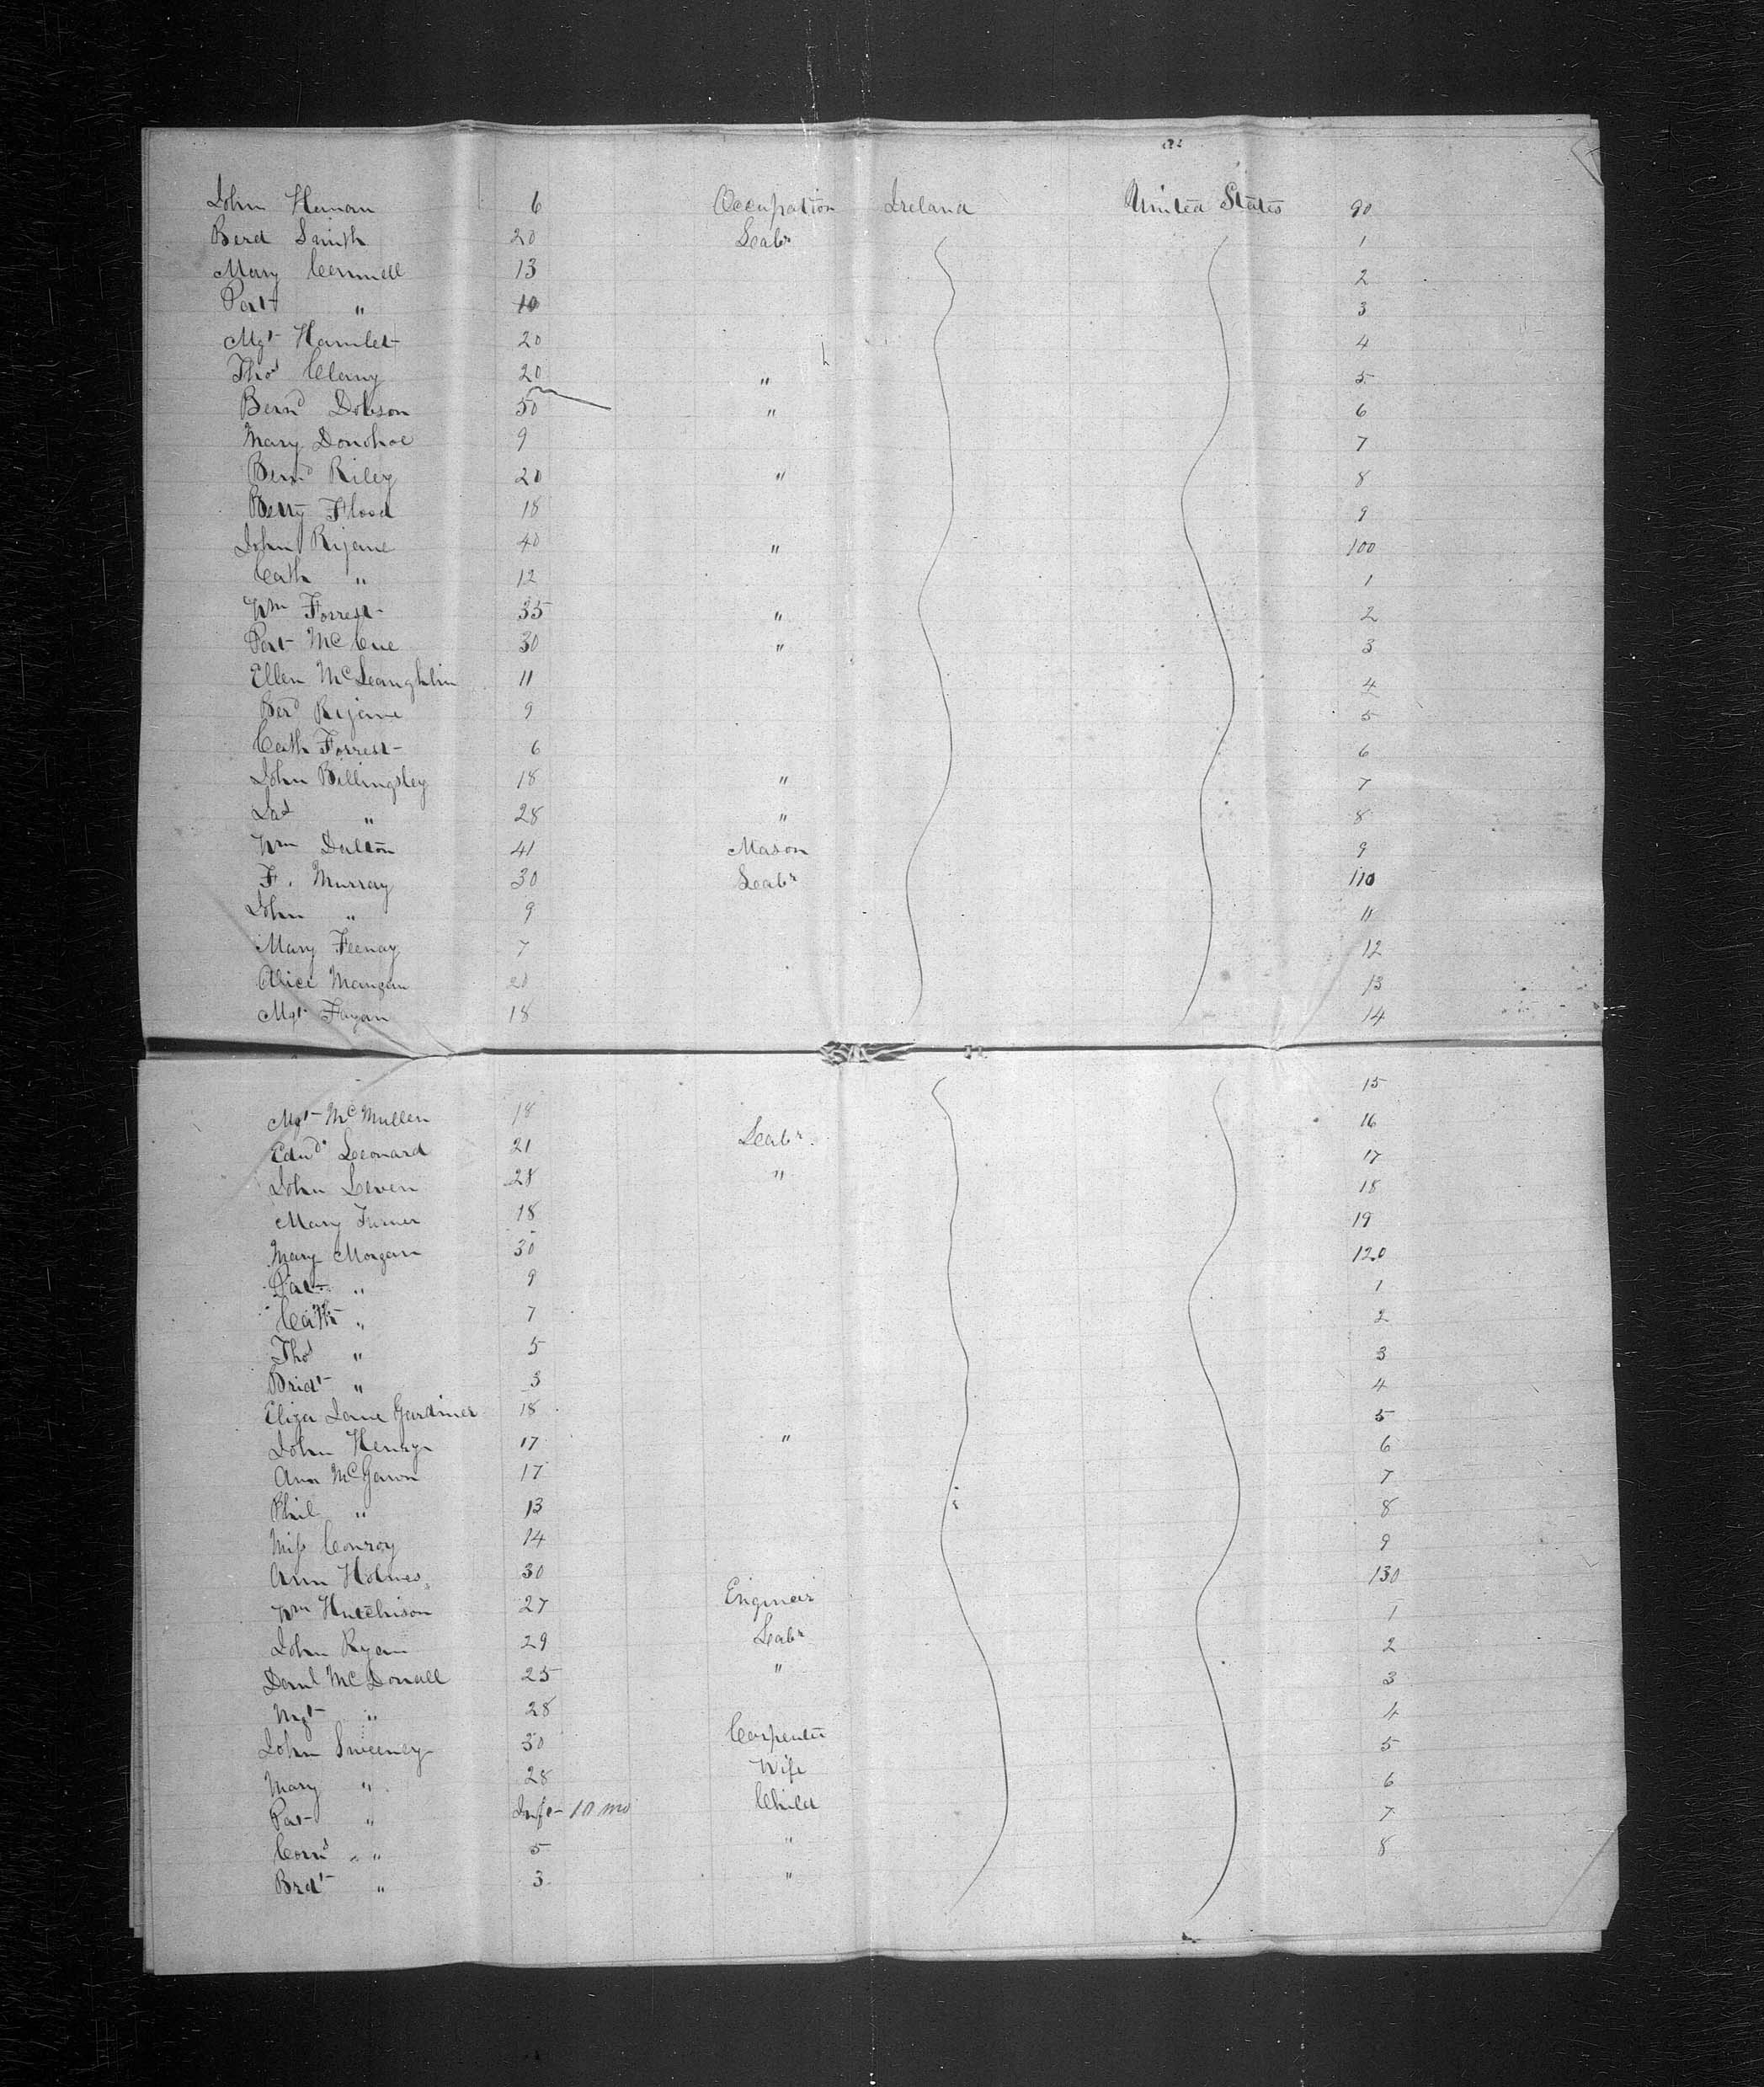 John Heenan 6 Occupation Ireland United States 90
Berd Smith 20 Labr 1
Mary Cornnell 13 2
Pat " 10 3
Mgt Hamlet 20 4
Thos Clany 20 " 5
Bernd Dobson 50 " 6
Mary Donohoe 9 7
Bernd Riley 20 " 8
Betty Flood 18 9
John Rijane 40 " 100
Cath " 12 1
Wm Forrest 35 " 2
Pat McCue 30 " 3
Ellen McLaughlin 11 4
Berd Rijane 9 5
Cath Forrest 6 6
John Billingsley 18 " 7
Jas " 28 " 8
Wm Dalton 41 Mason 9
F. Murray 30 Labr 110
John " 9 11
Mary Feenay 7 12
Alice Mangan 20 13
Mgt Fagan 18 14
Mgt McMullen 18 15
Edwd Leonard 21 Labr. 16
John Leven 28 " 17
Mary Turner 18 18
Mary Morgan 30 19
Pat " 9 120
Cath " 7 1
Thos " 5 2
Bridt " 3 3
Eliza Jane Gardiner 18 4
John Henry 17 " 5
Ann McGawn 17 6
Phil " 13 7
Miss Conroy 14 8
Ann Holmes 30 9
Wm Hutchison 27 Engineer 130
John Ryan 29 Labr 1
Danl McDonall 25 " 2
Mgt " 28 3
John Sweeney 30 Carpenter 4
Mary " 28 Wife 5
Pat " Inft 10 mo Child 6
Corns " 5 " 7
Brdt " 3 " 8